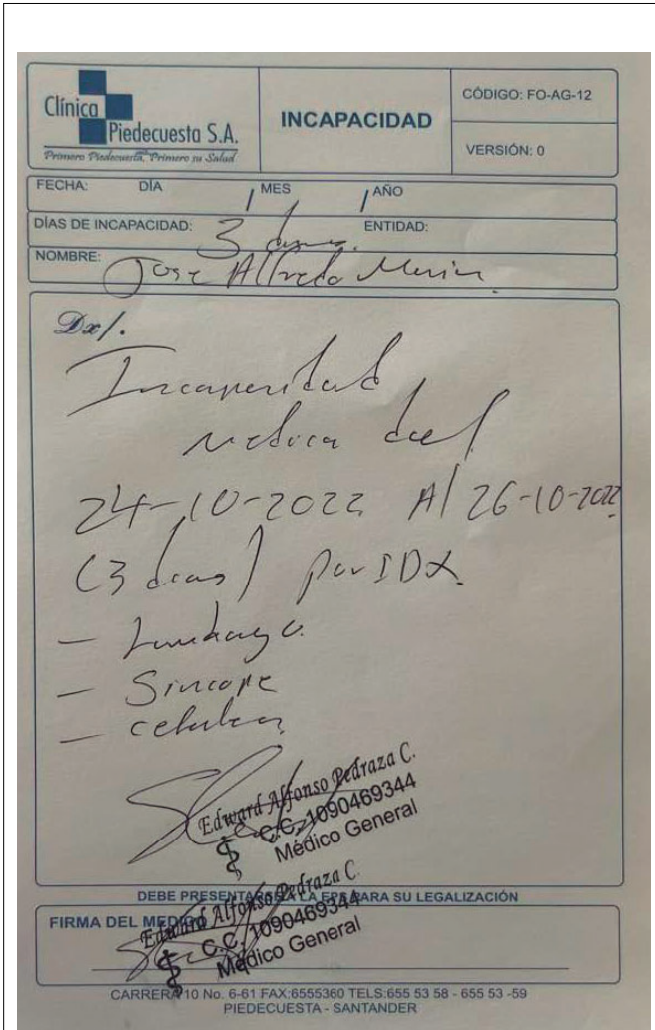 Clínica
Piedecuesta S.A.
Primero Piedecuesta, Primero su Salud
INCAPACIDAD
CÓDIGO: FO-AG-12
VERSIÓN: 0
FECHA: DÍA / MES / AÑO
DÍAS DE INCAPACIDAD: 3 ENTIDAD:
NOMBRE: Jose Alfredo
Dx/.
Incapacidad
medica del
24-10-2022 Al 26-10-2022
(3 dias) por IDX
- Lumbago
- Sincope
-
Edward Alfonso Pedraza C.
C.C. 1090469344
Médico General
DEBE PRESENTARSE A LA EPS PARA SU LEGALIZACIÓN
FIRMA DEL MEDICO
Edward Alfonso Pedraza C.
C.C. 1090469344
Médico General
CARRERA 10 No. 6-61 FAX:6555360 TELS:655 53 58 - 655 53 -59
PIEDECUESTA - SANTANDER